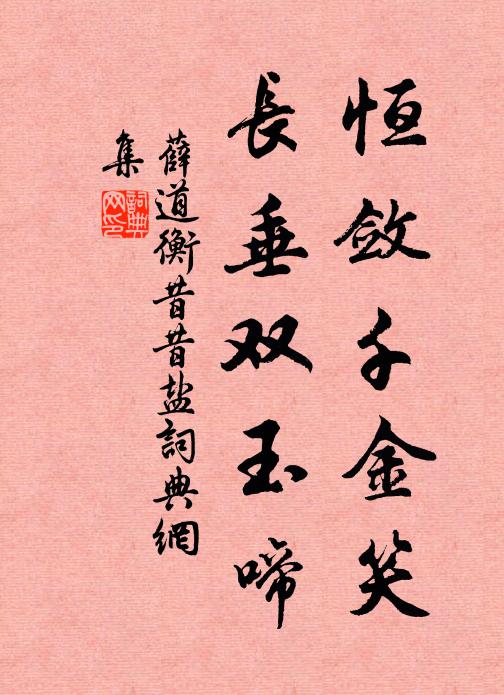 恒斂千金笑
長垂双玉啼
薛道衡昔昔盐詞典網
集
詞典
网印